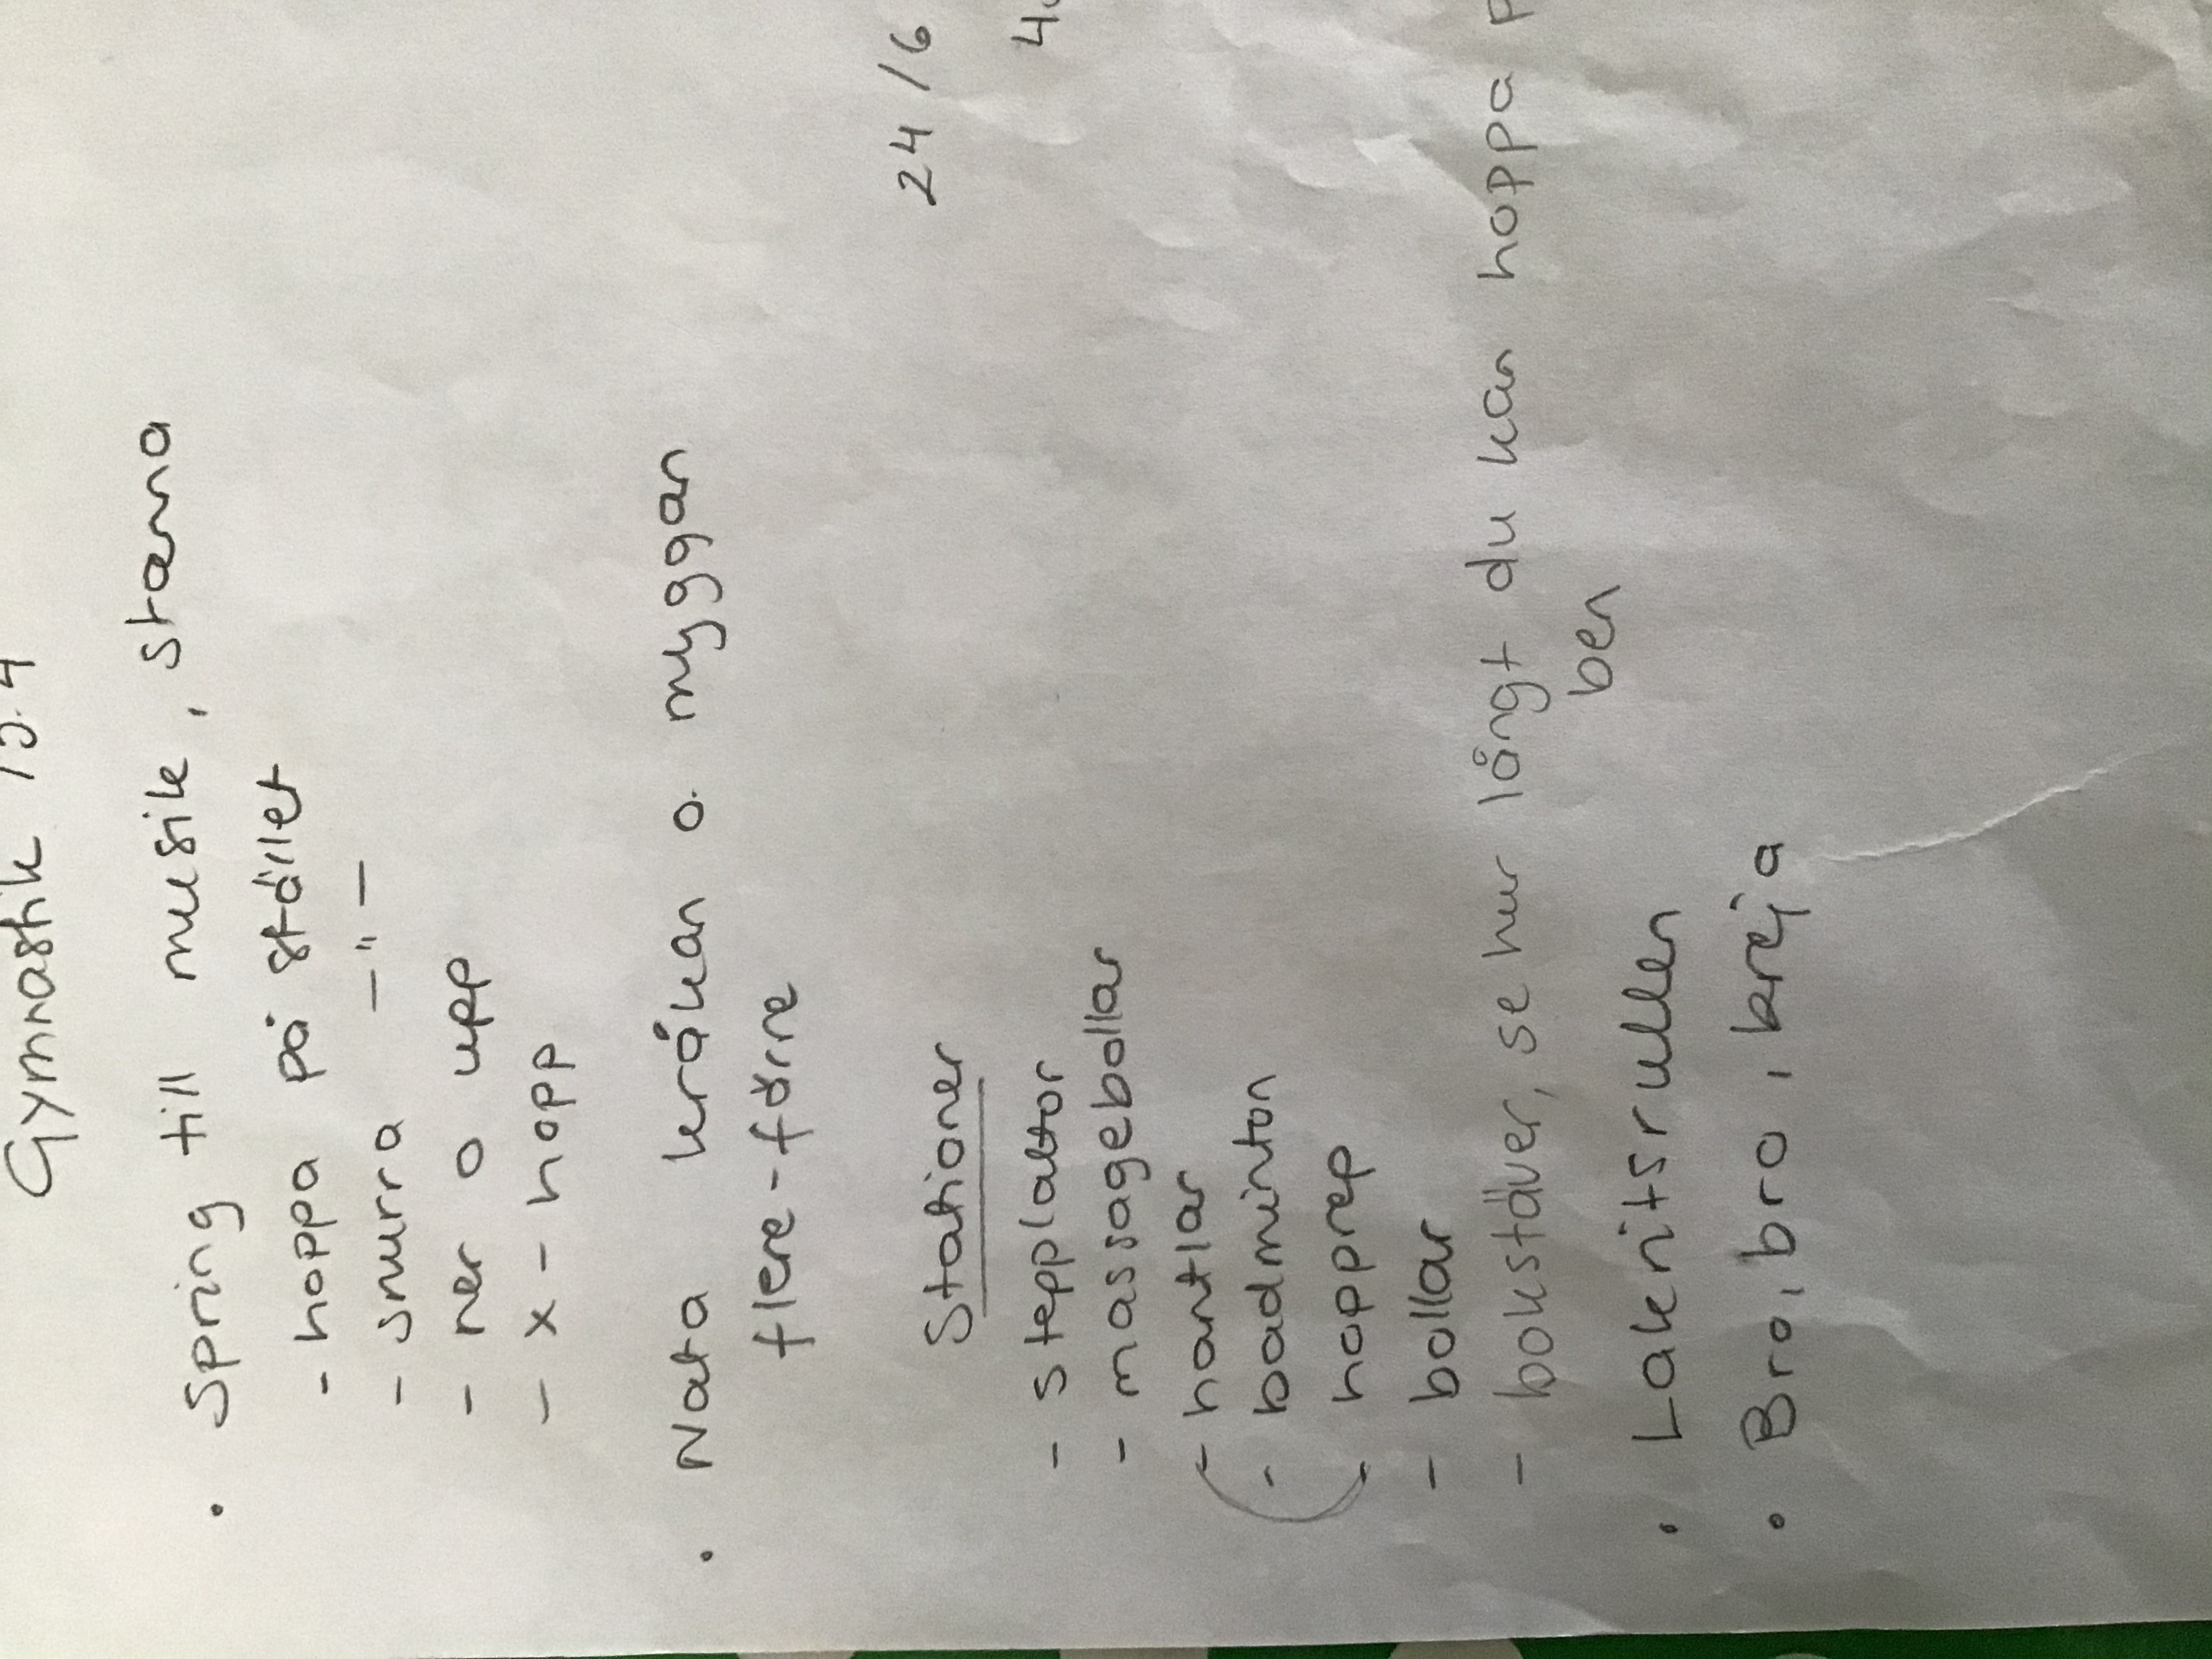 Gymnastik 15.4
• Spring till musik, stanna
- hoppa på stället
- snurra -"-
- ner o upp
- x-hopp
• Nata kråkan o. myggan
flere-färre
24/6
Stationer
- stepplattor
- massagebollar
- hantlar
- badminton
- hopprep
- bollar
- bokstäver, se hur långt du kan hoppa
ben
• Lakritsrullen
• Bro, bro, breja